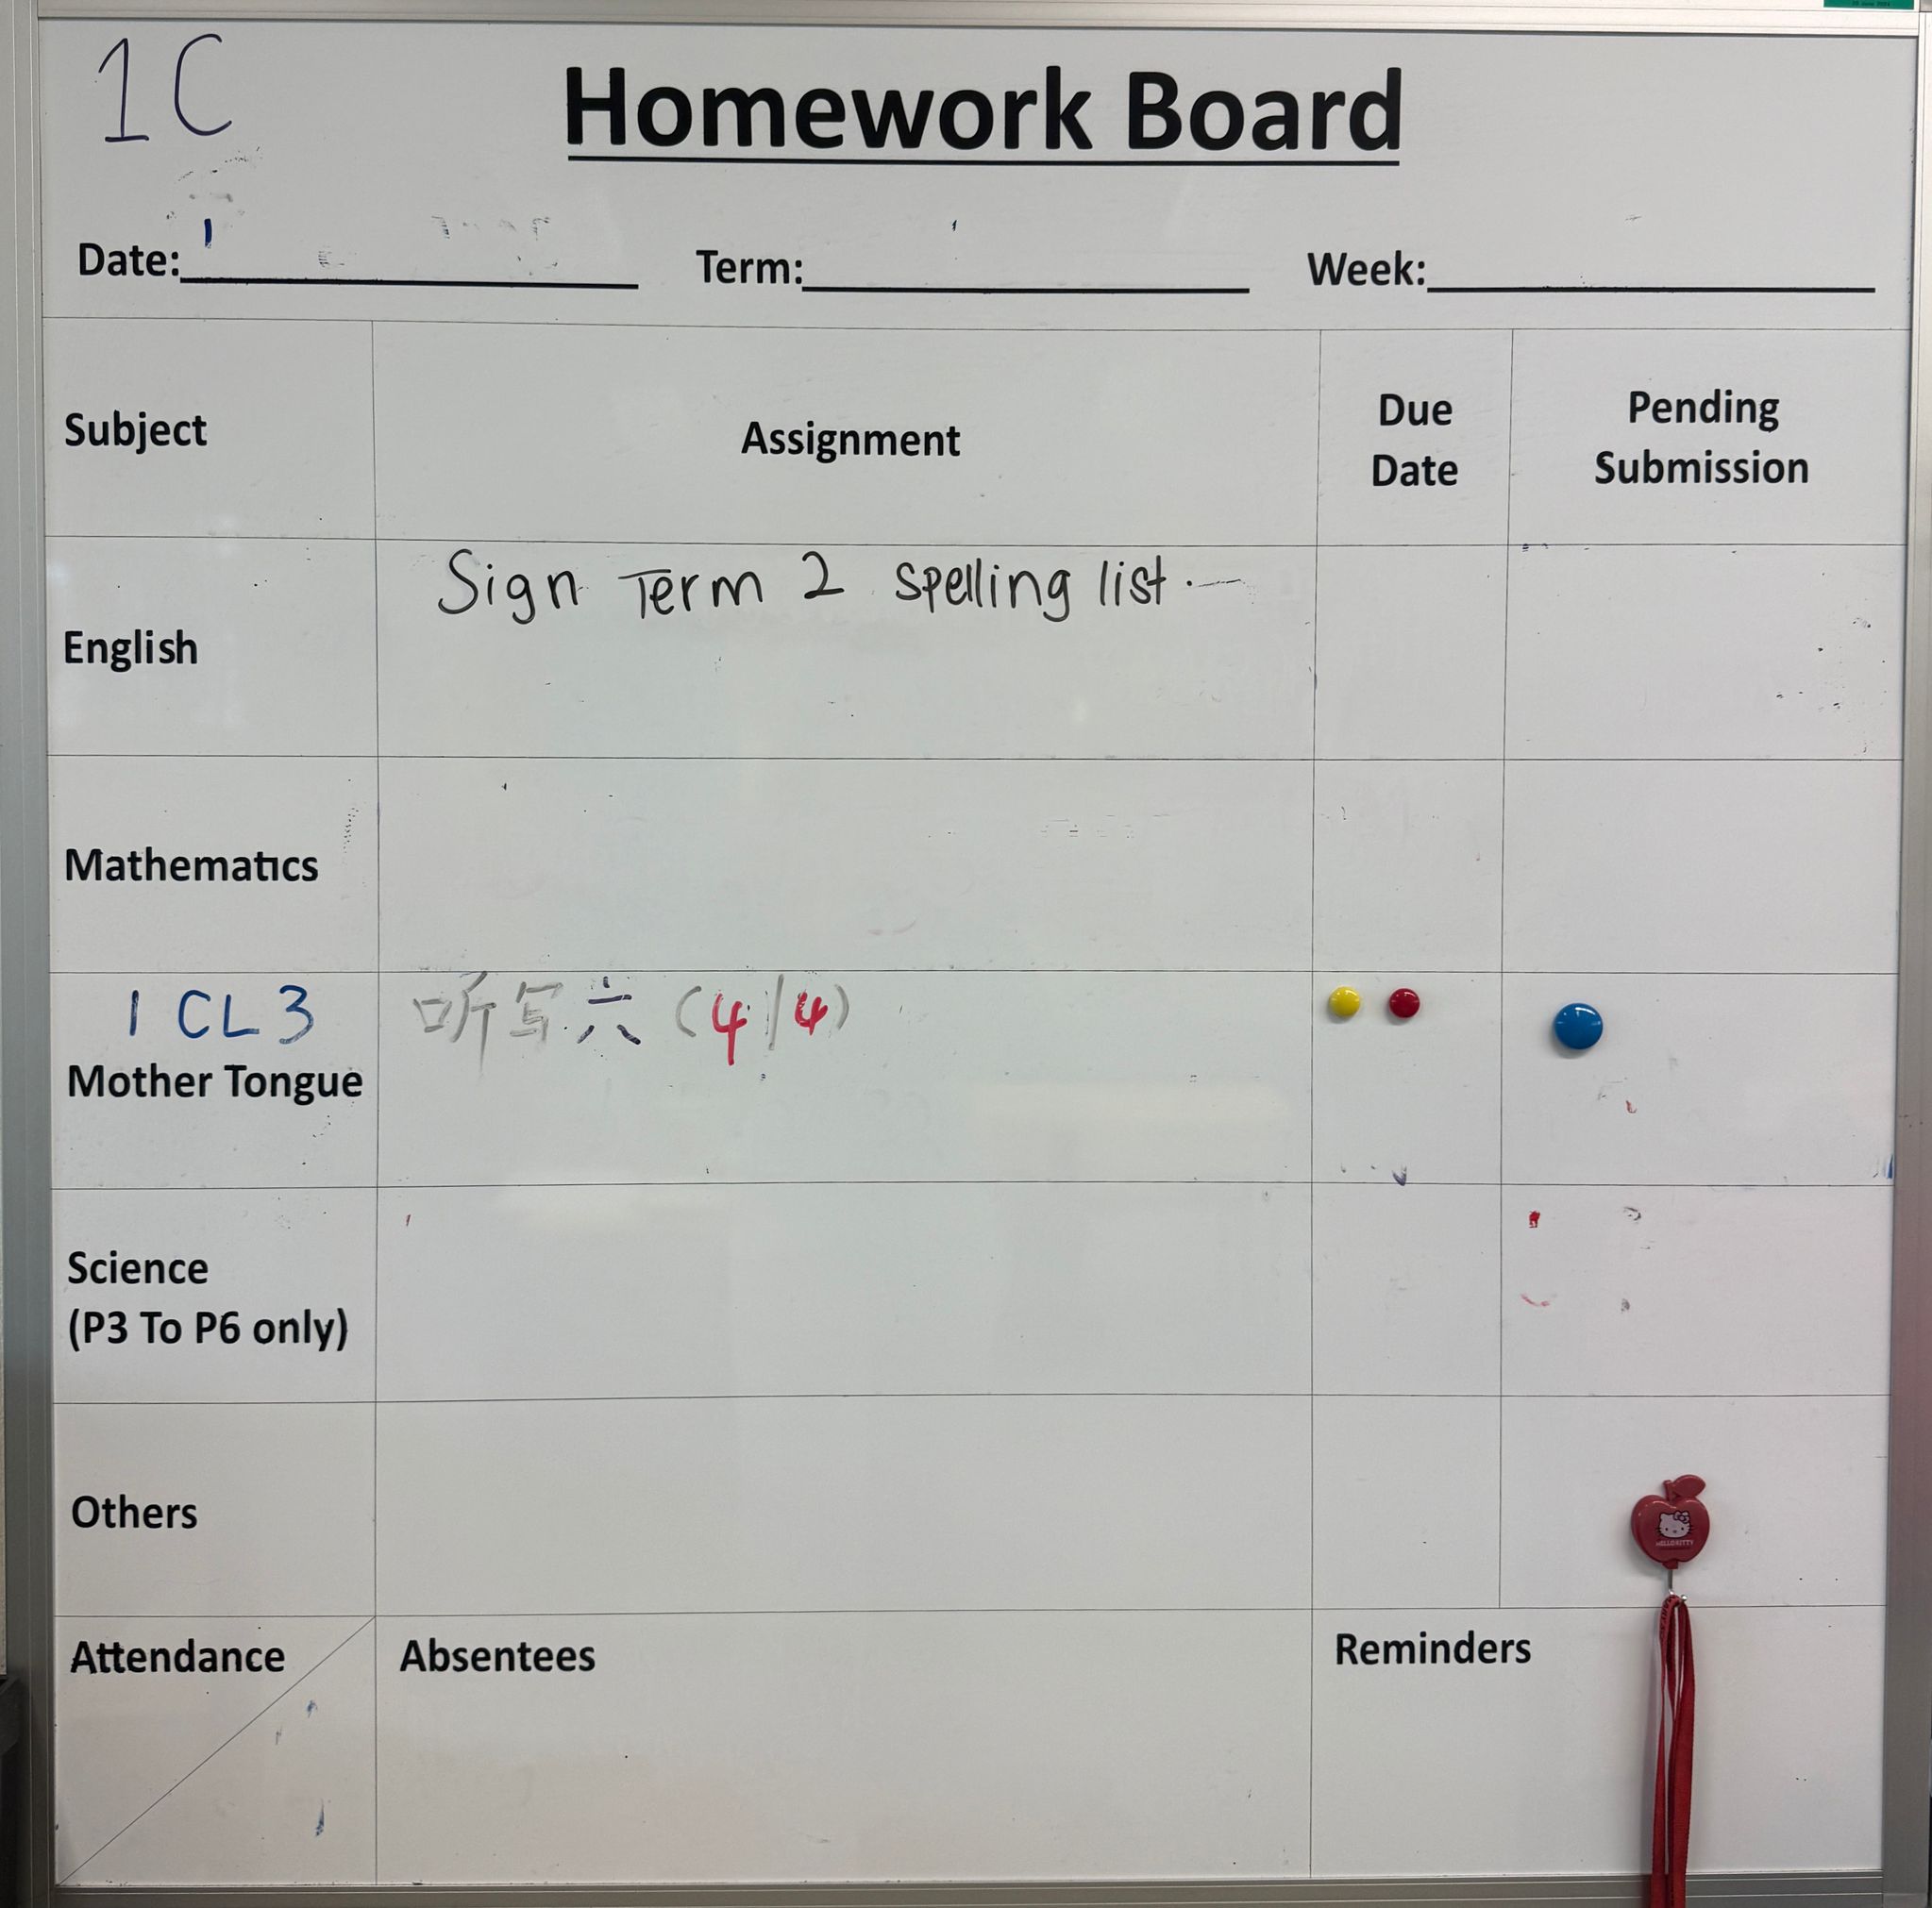 1C
Homework Board
Date: Term: Week:
Subject Assignment Due Date Pending Submission
English Sign Term 2 spelling list.
Mathematics
1 CL3 听写六 (4/4)
Mother Tongue
Science
(P3 To P6 only)
Others
HELLO KITTY
Attendance Absentees Reminders